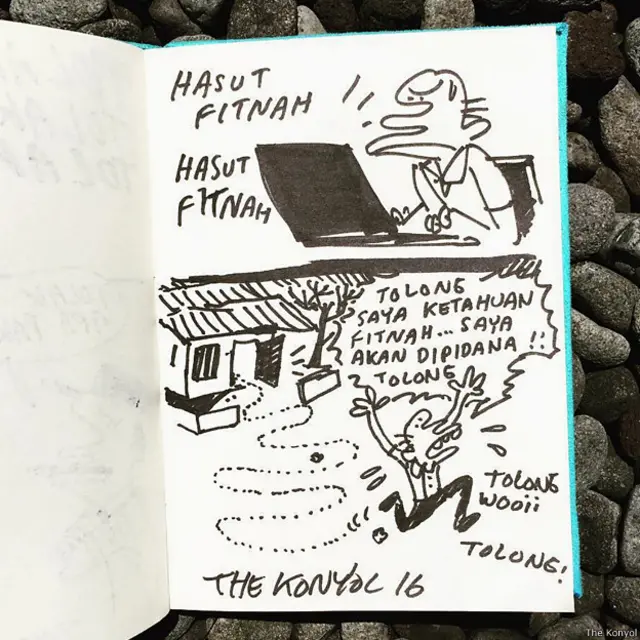 HASUT
FITNAH
HASUT
FITNAH
TOLONG
SAYA KETAHUAN
FITNAH... SAYA
AKAN DIPIDANA !!
TOLONG
TOLONG
WOOii
TOLONG!
THE KONYOL 16
The Konyol